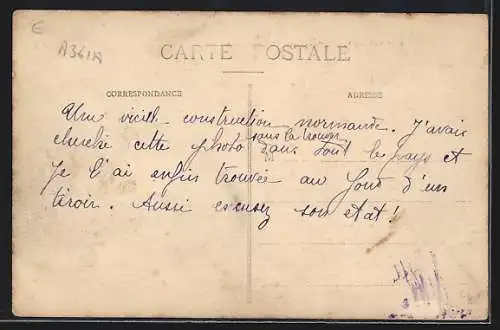 E
A361A
CARTE POSTALE
CORRESPONDANCE
ADRESSE
Une vieille construction normande. J'avais
cherché cette photo dans tout le pays et
sans la trouver
je l'ai enfin trouvée au fond d'un
tiroir. Aussi excusez son état!